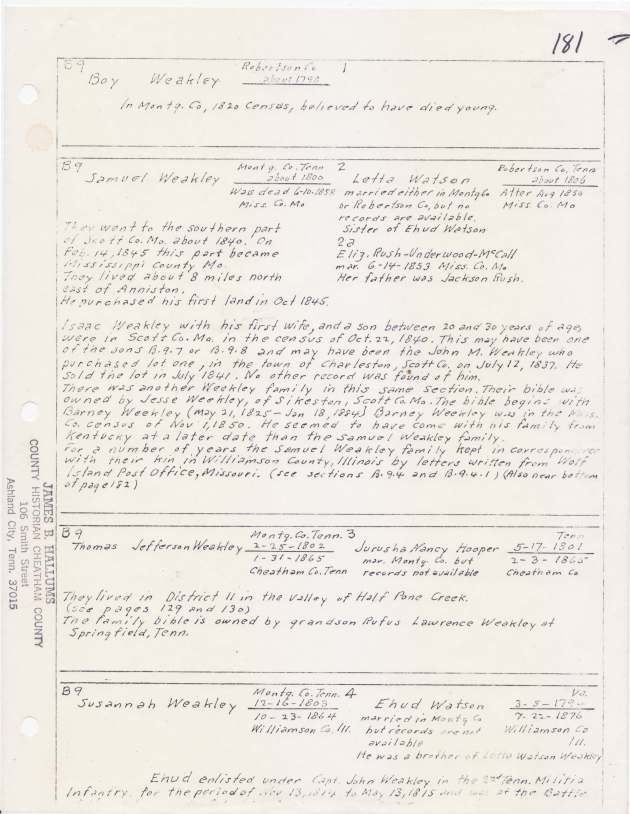 181
B9 Robertson Co 1
Boy Weakley about 1798
In Montg. Co, 1820 Census, believed to have died young.
B9 Montg. Co. Tenn 2 Robertson Co, Tenn
Samuel Weakley about 1800 Letta Watson about 1806
Was dead 6-10-1852 married either in Montg Co After Aug 1850
Miss. Co. Mo or Robertson Co, but no Miss Co. Mo
records are available.
They went to the southern part Sister of Ehud Watson
of Scott Co. Mo. about 1840. On 2a
Feb. 14, 1845 this part became Eliz. Rush-Underwood-McCall
Mississippi County Mo. mar. 6-14-1853 Miss. Co. Mo
They lived about 8 miles north Her father was Jackson Rush.
east of Anniston.
He purchased his first land in Oct 1845.
Isaac Weakley with his first wife, and a son between 20 and 30 years of age,
were in Scott Co. Mo. in the census of Oct. 22, 1840. This may have been one
of the sons B.9.7 or B.9.8 and may have been the John M. Weakley who
purchased lot one, in the town of Charleston, Scott Co, on July 12, 1837. He
sold the lot in July 1841. No other record was found of him.
There was another Weekley family in this same section. Their bible was
owned by Jesse Weekley, of Sikeston, Scott Co. Mo. The bible begins with
Barney Weekley (May 21, 1825 - Jan 18, 1884) Barney Weekley was in the Miss.
Co. census of Nov 1, 1850. He seemed to have come with his family from
Kentucky at a later date than the Samuel Weakley family.
For a number of years the Samuel Weakley family kept in correspondence
with their kin in Williamson County, Illinois by letters written from Wolf
Island Post Office, Missouri. (see sections B.9.4 and B.9.4.1) (Also near bottom
of page 182)
B9 Montg. Co. Tenn. 3 Tenn
Thomas Jefferson Weakley 2-25-1802 Jurusha Nancy Hooper 5-17-1801
1-31-1865 mar. Montg. Co. but 2-3-1865
Cheatham Co. Tenn records not available Cheatham Co
They lived in District 11 in the valley of Half Pone Creek.
(see pages 129 and 130)
The family bible is owned by grandson Rufus Lawrence Weakley of
Springfield, Tenn.
B9 Montg. Co. Tenn. 4 Va.
Susannah Weakley 12-16-1803 Ehud Watson 3-5-179
10-23-1864 married in Montg Co 7-22-1876
Williamson Co, Ill. but records are not Williamson Co
available Ill.
He was a brother of Letta Watson Weakley
Ehud enlisted under Capt. John Weakley in the 2nd Tenn. Militia
Infantry. for the period of Nov 13, 1814 to May 13, 1815 and was at the Battle
JAMES B. HALLUMS
COUNTY HISTORIAN CHEATHAM COUNTY
106 Smith Street
Ashland City, Tenn. 37015